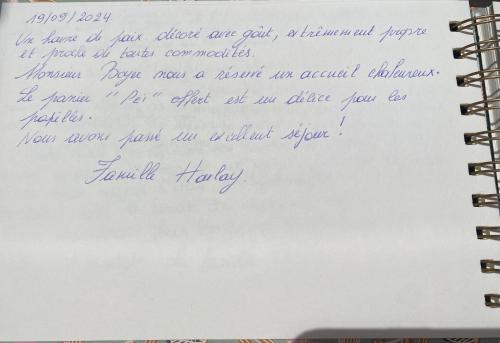 19/09/2024.
Un havre de paix décoré avec goût, extrêmement propre
et proche de toutes commodités.
Monsieur Boyer nous a réservé un accueil chaleureux.
Le panier "Péi" offert est un délice pour les
papilles.
Nous avons passé un excellent séjour !
Famille Hoarlay.